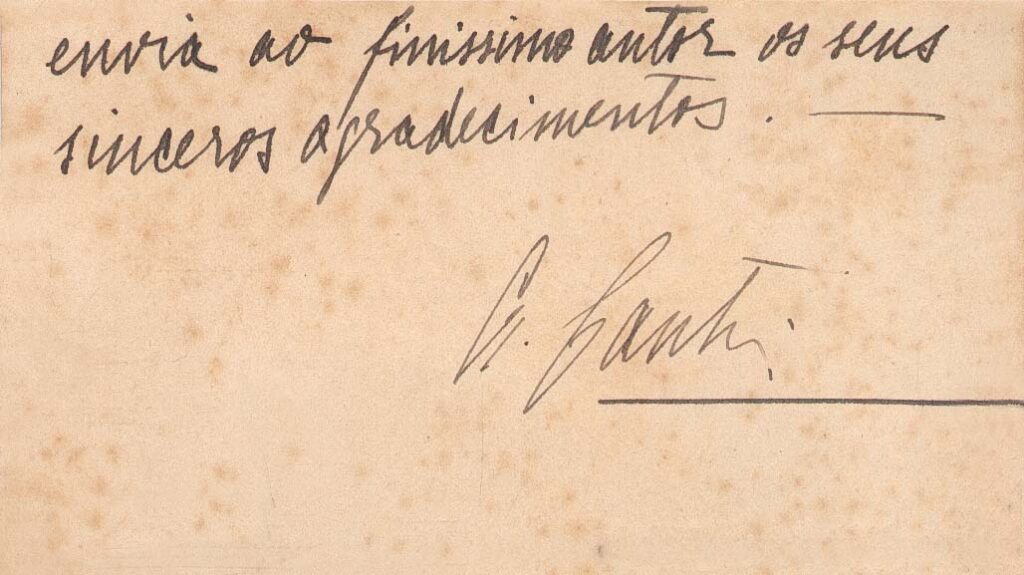 envia ao finissimo autor os seus
sinceros agradecimentos. —
G. Santi